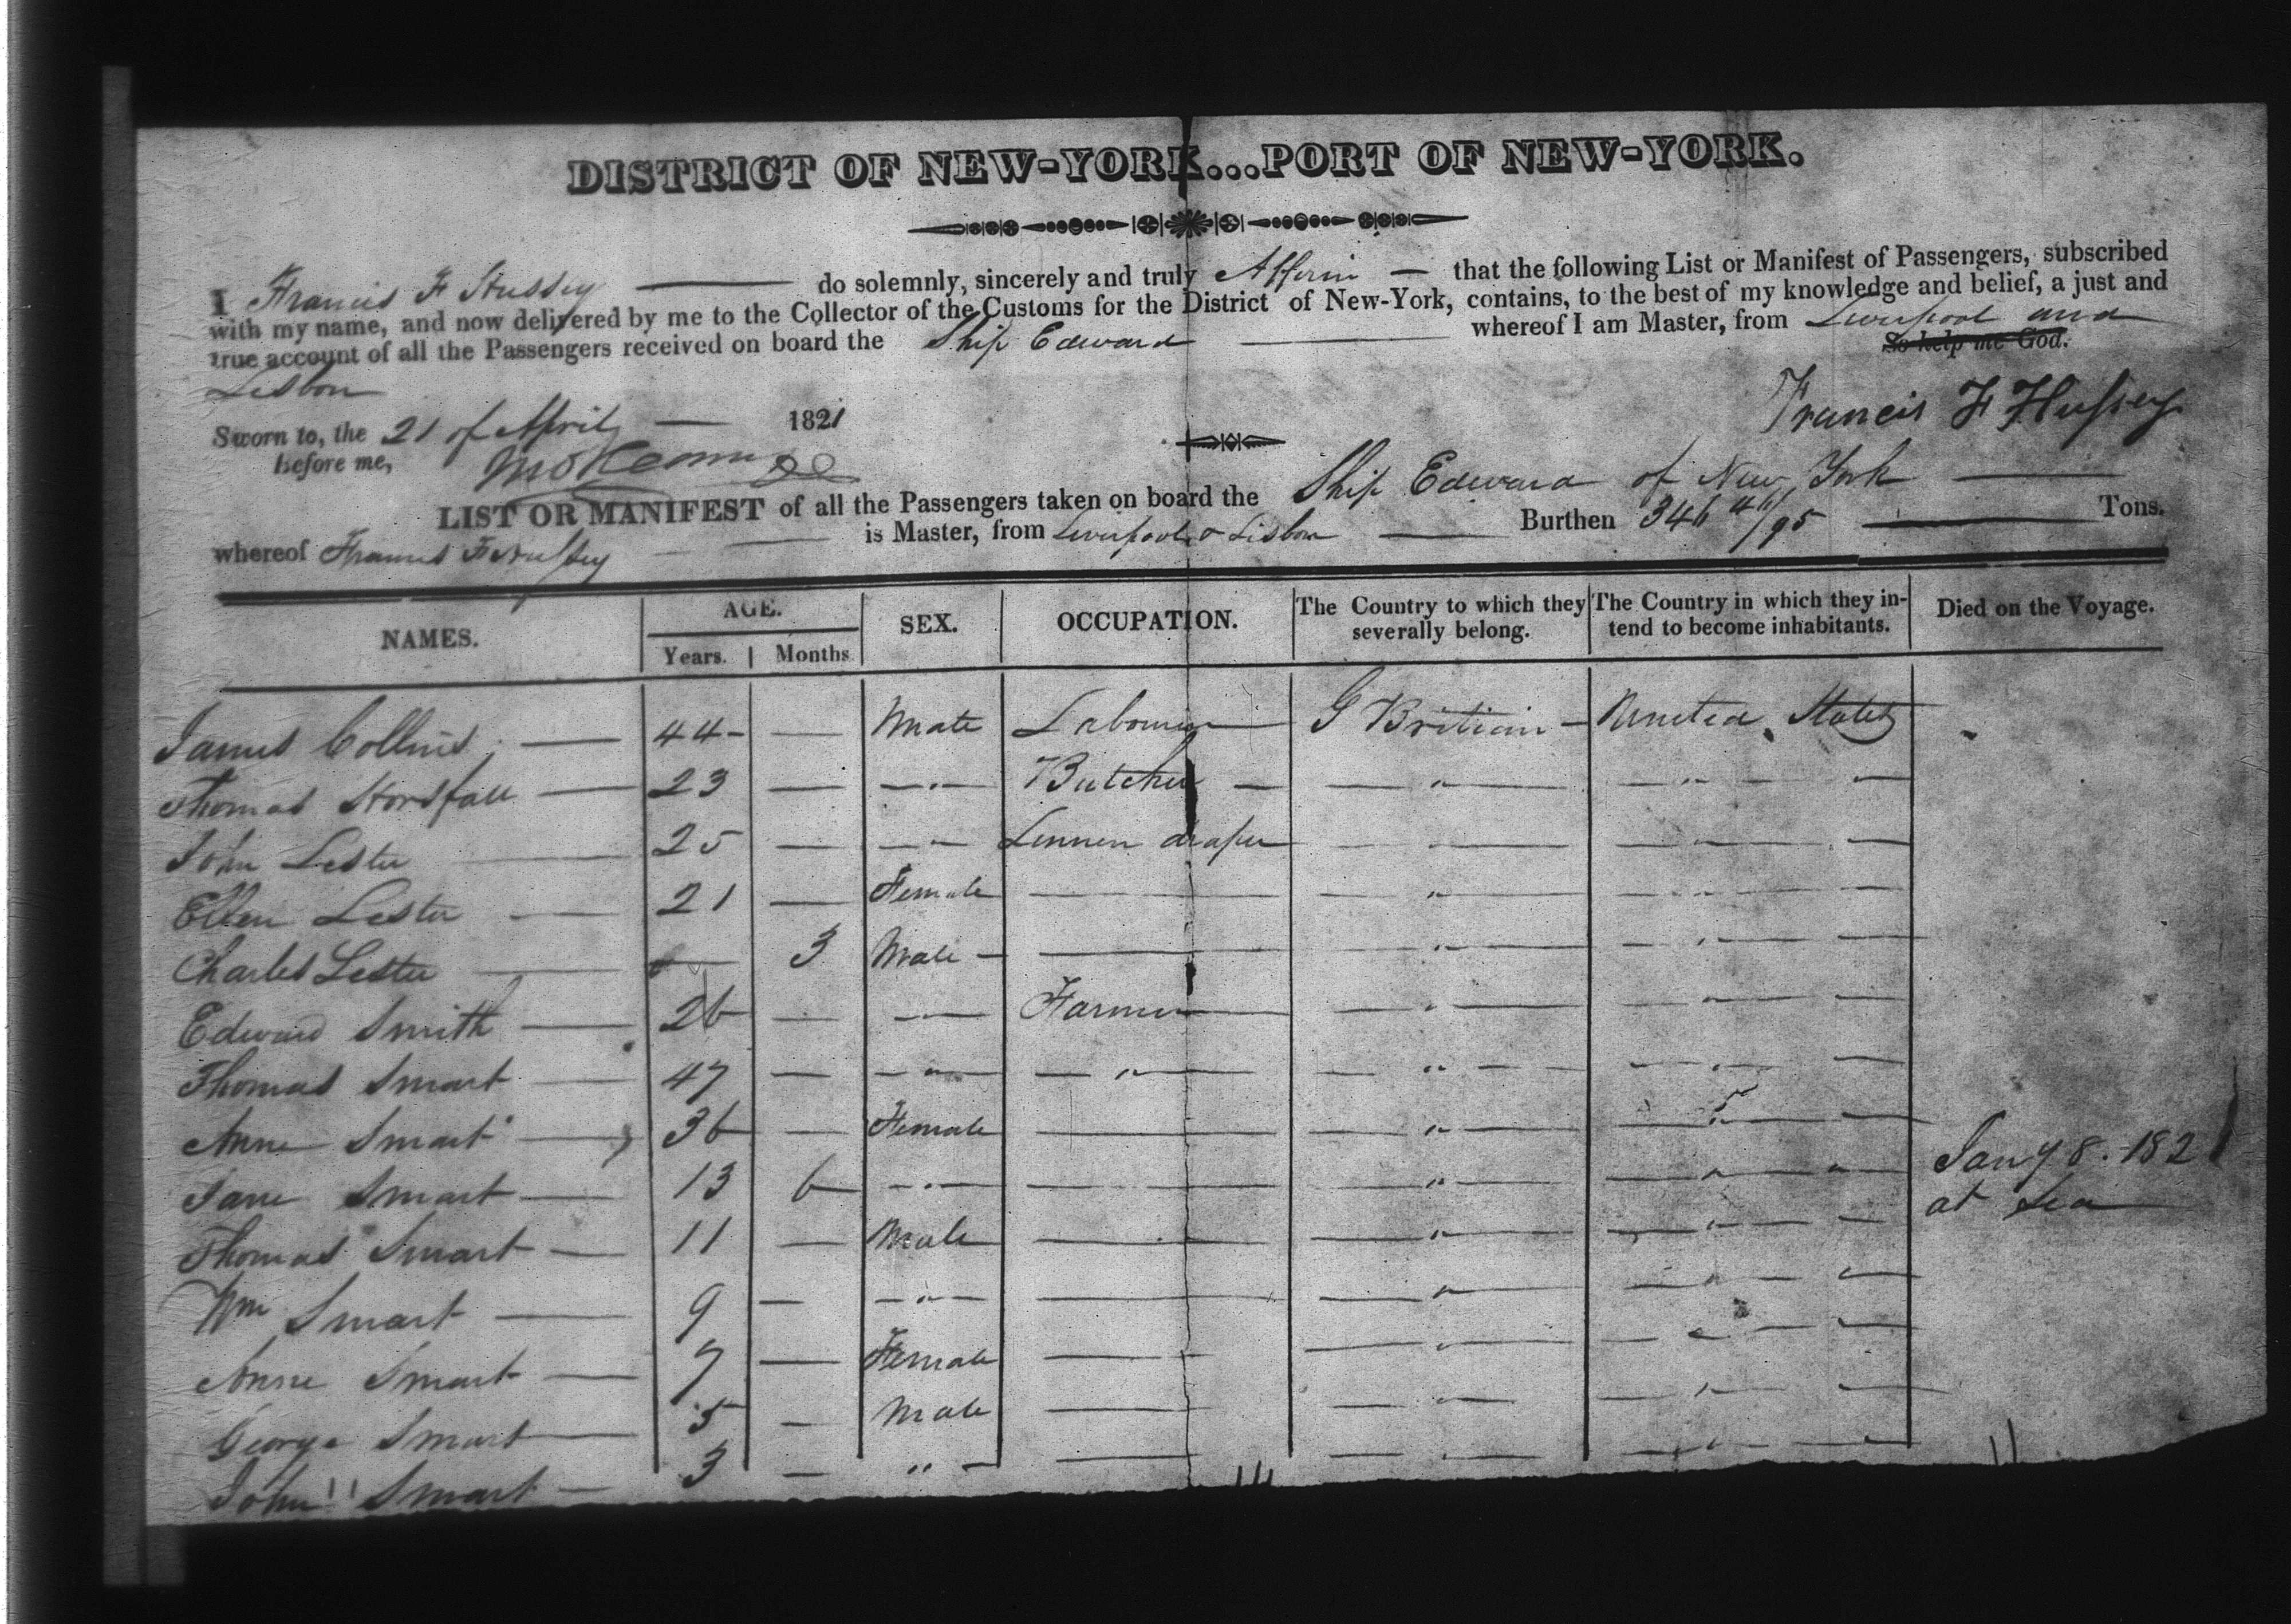 DISTRICT OF NEW-YORK...PORT OF NEW-YORK.
I Francis F Hussey do solemnly, sincerely and truly Affirm — that the following List or Manifest of Passengers, subscribed
with my name, and now delivered by me to the Collector of the Customs for the District of New-York, contains, to the best of my knowledge and belief, a just and
true account of all the Passengers received on board the Ship Edward whereof I am Master, from Liverpool and
Lisbon So help me God.
Francis F Hussey
Sworn to, the 21 of April — 1821
before me,
LIST OR MANIFEST of all the Passengers taken on board the Ship Edward of New York
whereof Francis F Hussey is Master, from Liverpool & Lisbon Burthen 346 46/95 Tons.
NAMES. AGE. SEX. OCCUPATION. The Country to which they severally belong. The Country in which they intend to become inhabitants. Died on the Voyage.
Years. Months
James Collins — 44 — Male Labourer G Britiain — United States
Thomas Horsfall — 23 — " Butcher — " "
John Lester — 25 — " Linnen draper " "
Ellen Lester — 21 — Female — " "
Charles Lester — 3 Male — " "
Edward Smith — 26 — " Farmer " "
Thomas Smart — 47 — " " " "
Anne Smart — 36 — Female — " "
Jane Smart — 13 6 " — " " Jany 8. 1821 at Sea
Thomas Smart — 11 — Male — " "
Wm Smart — 9 — " — " "
Anne Smart — 7 — Female — " "
George Smart — 5 — Male — " "
John Smart — 3 — " — " "